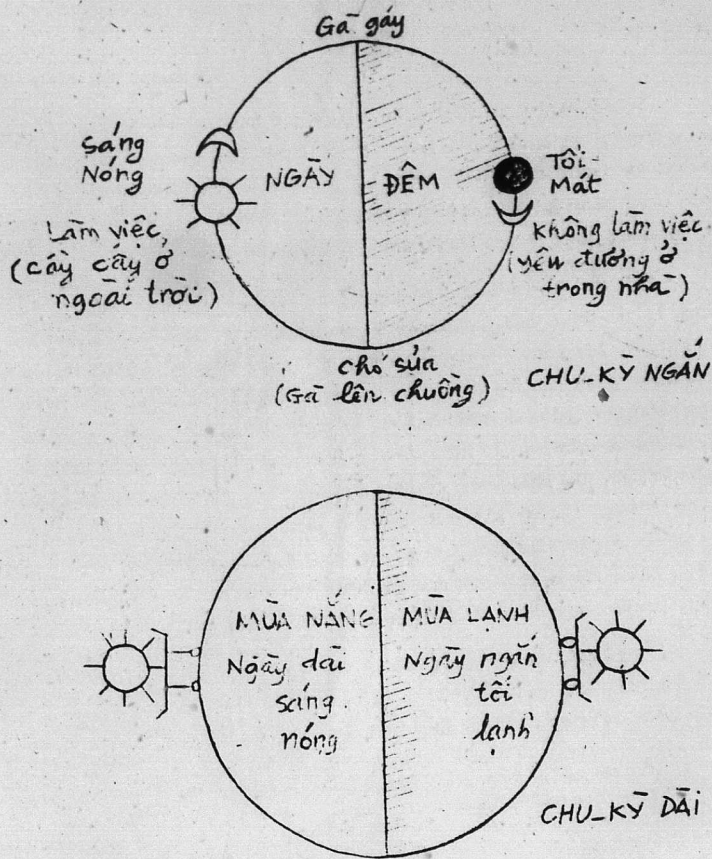 Gà gáy
Sáng
Nóng
NGÀY
ĐÊM
Tối
Mát
Làm việc,
(cáy cấy ở
ngoài trời)
Không làm việc
(yên đương ở
trong nhà)
chó sủa
(Gà lên chuồng)
CHU-KỲ NGẮN
MÙA NẮNG
Ngày dài
sáng
nóng
MÙA LẠNH
Ngày ngắn
tối
lạnh
CHU-KỲ DÀI